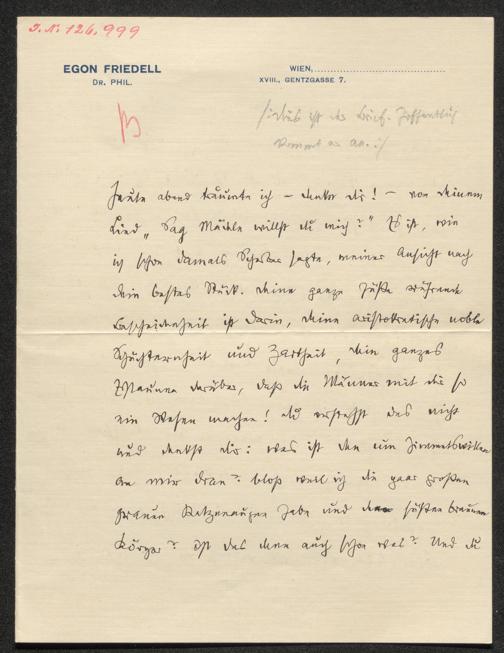 J.N. 126.999
EGON FRIEDELL
DR. PHIL.
WIEN,
XVIII., GENTZGASSE 7.
ist der Brief. Hoffentlich
kommt er an.
Heute abend träumte ich – denke dir! – von deinem
Lied „Sag Mädle willst du mich?" Es ist, wie
ich schon damals sagte, meiner Ansicht nach
dein bestes Stück. Deine ganze süße rührende
Bescheidenheit ist darin, deine aristokratische noble
Schüchternheit und Zartheit, dein ganzes
Erstaunen darüber, daß die Männer mit dir so
ein Wesen machen! du verstehst das nicht
und denkst dir: was ist denn um Himmelswillen
an mir dran? bloß weil ich die paar großen
grauen Katzenaugen habe und den süßen braunen
Körper? Ist das denn auch schon was? Und du